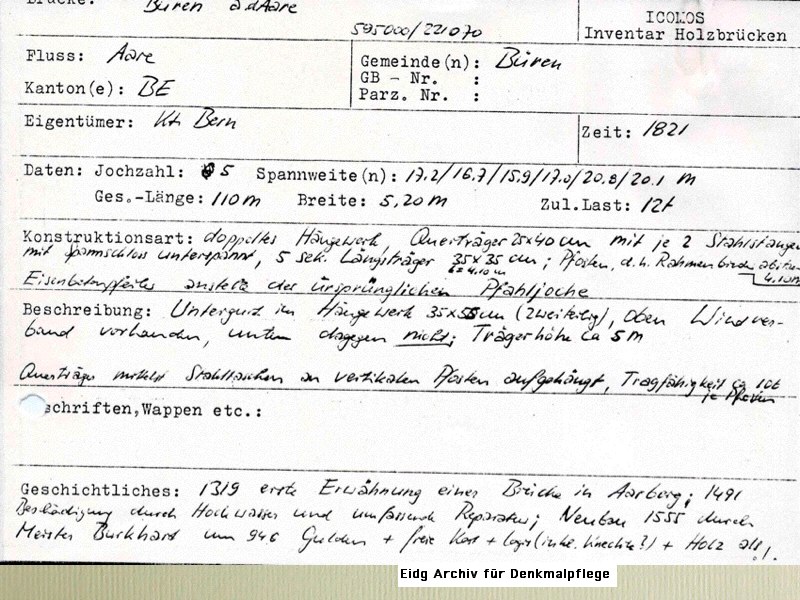 Brücke: Büren a.d. Aare
595000/221070
ICOMOS
Inventar Holzbrücken
Fluss: Aare
Kanton(e): BE
Gemeinde(n): Büren
GB - Nr. :
Parz. Nr. :
Eigentümer: Kt. Bern
Zeit: 1821
Daten: Jochzahl: 5 Spannweite(n): 17.2/16.7/15.9/17.0/20.8/20.1 m
Ges.-Länge: 110 m Breite: 5,20 m Zul.Last: 12t
Konstruktionsart: doppeltes Hängewerk, Querträger 25x40 cm mit je 2 Stahlstangen
mit Spannschloss unterspannt, 5 sek. Längsträger 35x35 cm; Pfosten, d.h. Rahmenbinder
4.10 m
Eisenbetonpfeiler anstelle der ursprünglichen Pfahljoche
Beschreibung: Untergurt im Hängewerk 35x55 cm (zweiteilig), oben Windver-
band vorhanden, unten dagegen nicht; Trägerhöhe ca 5 m
Querträger mittelst Stahllaschen an vertikalen Pfosten aufgehängt, Tragfähigkeit ca 10t
je Pfosten
schriften,Wappen etc.:
Geschichtliches: 1319 erste Erwähnung einer Brücke in Aarberg; 1491
Beschädigung durch Hochwasser und umfassende Reparatur; Neubau 1555 durch
Meister Burkhart um 946 Gulden + freie Kost + logis (inkl. Knechte?) + Holz
Eidg Archiv für Denkmalpflege